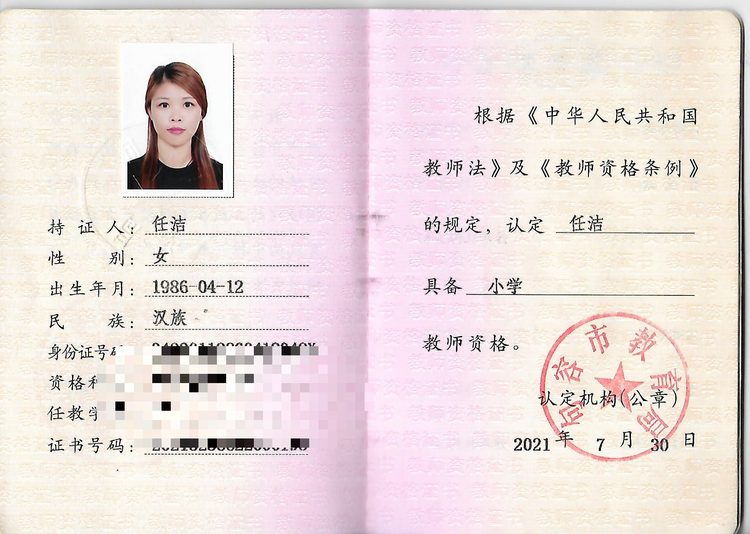 持证人：任洁
性别：女
出生年月：1986-04-12
民族：汉族
身份证号
资格
任教学
证书号码：
根据《中华人民共和国
教师法》及《教师资格条例》
的规定，认定 任洁
具备 小学
教师资格。
句容市教育局
认定机构(公章)
2021年 7月 30日